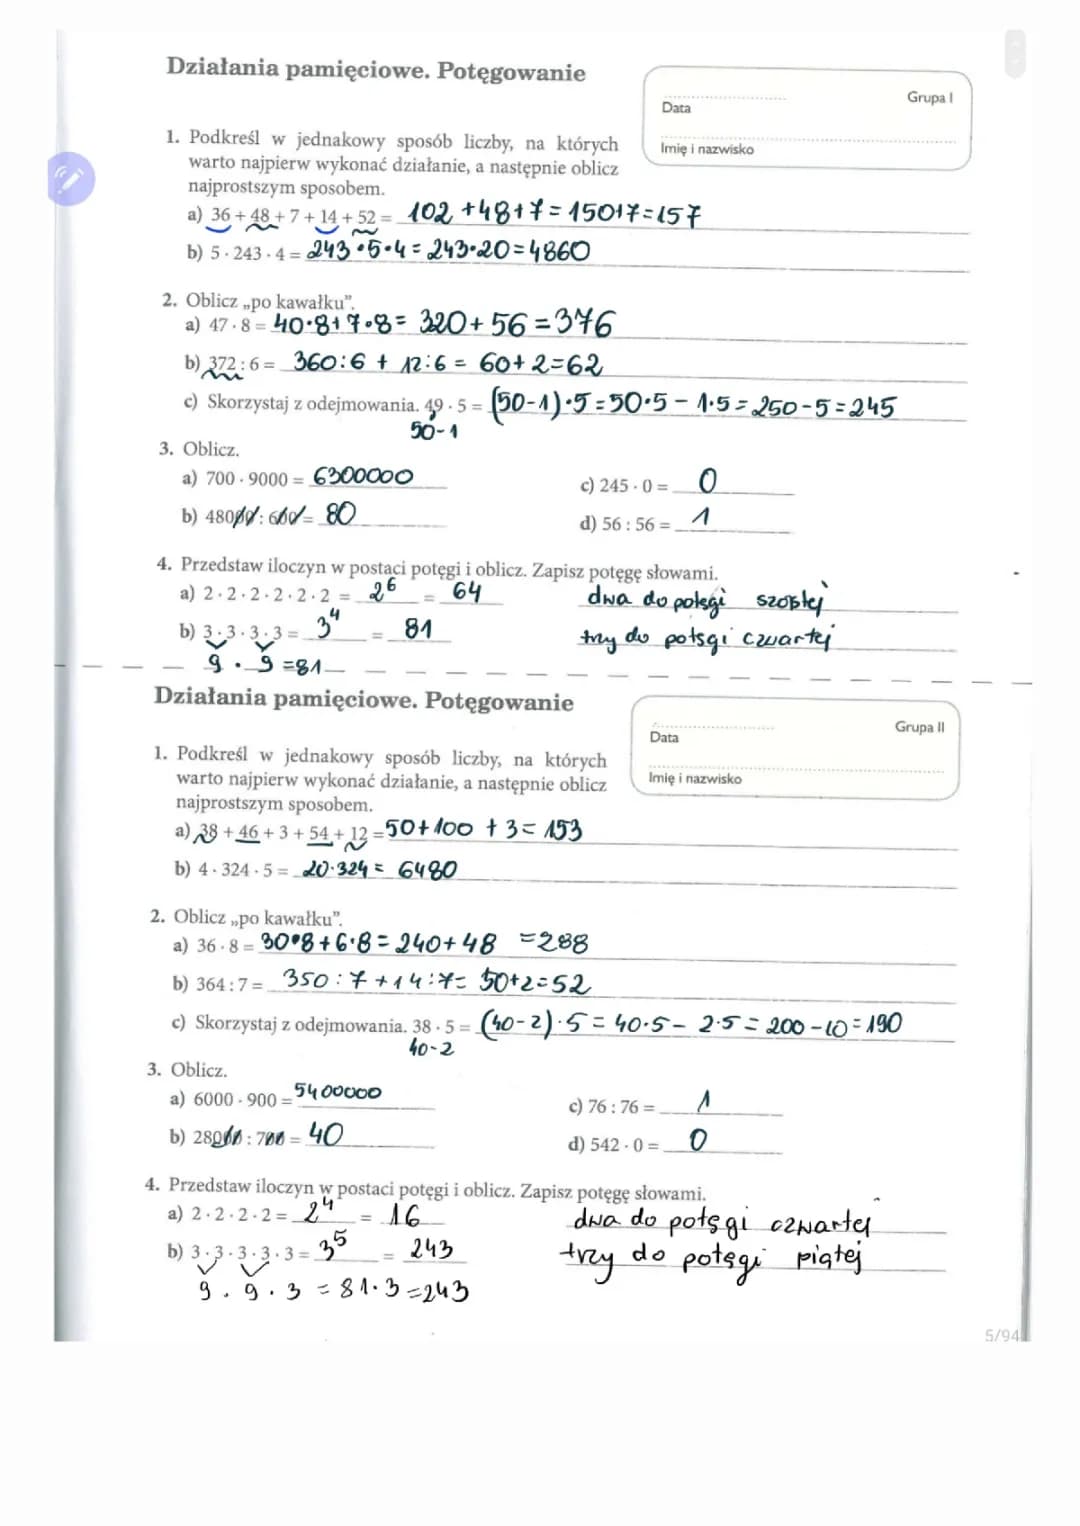 Działania pamięciowe. Potęgowanie
Grupa I
Data
Imię i nazwisko
1. Podkreśl w jednakowy sposób liczby, na których
warto najpierw wykonać działanie, a następnie oblicz
najprostszym sposobem.
a) 36 + 48 + 7 + 14 + 52 = 102 +48+7 = 150+7=157
b) 5 · 243 · 4 = 243·5·4 = 243·20=4860
2. Oblicz „po kawałku”.
a) 47 · 8 = 40·8+7·8= 320+56=376
b) 372 : 6 = 360:6 + 12:6 = 60+2=62
c) Skorzystaj z odejmowania. 49 · 5 = (50-1)·5=50·5-1·5=250-5=245
50-1
3. Oblicz.
a) 700 · 9000 = 6300000
c) 245 · 0 = 0
b) 48000 : 600 = 80
d) 56 : 56 = 1
4. Przedstaw iloczyn w postaci potęgi i oblicz. Zapisz potęgę słowami.
a) 2 · 2 · 2 · 2 · 2 · 2 = 2⁶ = 64 dwa do potęgi szóstej
b) 3 · 3 · 3 · 3 = 3⁴ = 81 trzy do potęgi czwartej
9 · 9 =81
Działania pamięciowe. Potęgowanie
Grupa II
Data
Imię i nazwisko
1. Podkreśl w jednakowy sposób liczby, na których
warto najpierw wykonać działanie, a następnie oblicz
najprostszym sposobem.
a) 38 + 46 + 3 + 54 + 12 = 50+100 +3= 153
b) 4 · 324 · 5 = 20·324 = 6480
2. Oblicz „po kawałku”.
a) 36 · 8 = 30·8+6·8=240+48 =288
b) 364 : 7 = 350:7+14:7= 50+2=52
c) Skorzystaj z odejmowania. 38 · 5 = (40-2)·5=40·5-2·5=200-10=190
40-2
3. Oblicz.
a) 6000 · 900 = 5400000
c) 76 : 76 = 1
b) 28000 : 700 = 40
d) 542 · 0 = 0
4. Przedstaw iloczyn w postaci potęgi i oblicz. Zapisz potęgę słowami.
a) 2 · 2 · 2 · 2 = 2⁴ = 16 dwa do potęgi czwartej
b) 3 · 3 · 3 · 3 · 3 = 3⁵ = 243 trzy do potęgi piątej
9 · 9 · 3 = 81·3=243
5/94